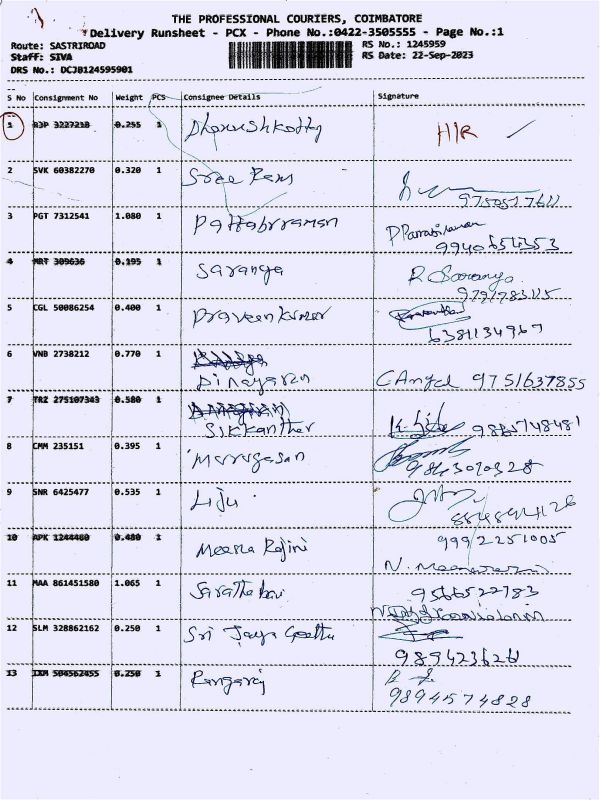 THE PROFESSIONAL COURIERS, COIMBATORE
Delivery Runsheet - PCX - Phone No.:0422-3505555 - Page No.:1
Route: SASTRIROAD
RS No.: 1245959
Staff: SIVA
RS Date: 22-Sep-2023
DRS No.: DCJB124595901
S No Consignment No Weight PCS Consignee Details Signature
1 RJP 322721B 0.255 1 H/R
2 SVK 60382270 0.320 1 Sree Ram
9750517611
3 PGT 7312541 1.080 1 Pattabiraman
9940654353
4 MRT 309636 0.195 1 Saranya R. Saranya
9791783115
5 CGL 50086254 0.400 1 Praveen Kumar
6381134967
6 VNB 2738212 0.770 1
Dinayaran C Angel 9751637855
7 TRZ 275107343 0.580 1
Sikkanther 9865748481
8 CMM 235151 0.395 1 Murugasan
9843020328
9 SNR 6425477 0.535 1 Liju
10 APK 1244460 0.480 1 Meena Rojini 9992251005
11 MAA 861451580 1.065 1 9566522783
12 SLM 328862162 0.250 1 Sri Jaya Geetha
13 IXM 504562455 0.250 1 Rangaraj
9894574828